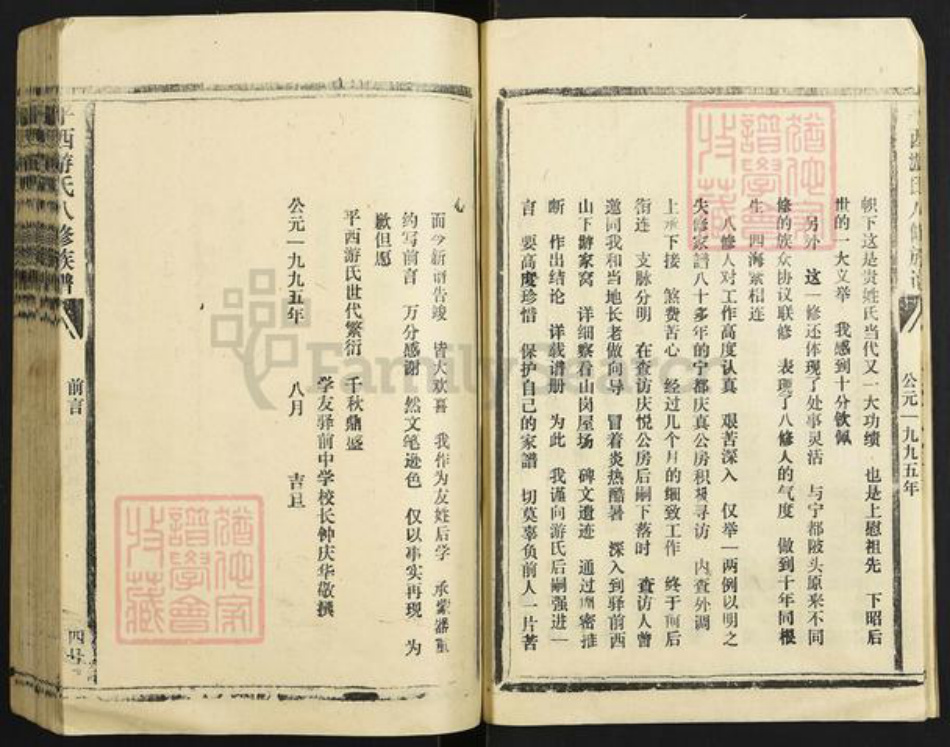 公元一九九五年
帜下这是贵姓氏当代又一大功绩 也是上慰祖先 下昭后
世的一大义举 我感到十分钦佩
另外 这一修还体现了处事灵活 与宁都陂头原来不同
修的族众协议联修 表现了八修人的气度 做到十年同根
生 四海紧相连
八修人对工作高度认真 艰苦深入 仅举一两例以明之
失修家譜八十多年的宁都庆真公房积极寻访 内查外调
上承下接 煞费苦心 经过几个月的细致工作 终于前后
衔连 支脉分明 在查访庆悦公房后嗣下落时 查访人曾
邀同我和当地长老做向导 冒着炎热酷暑 深入到驿前西
山下游家窝 详细察看山岗屋场 碑文遗迹 通过周密推
断 作出结论 详载谱册 为此 我谨向游氏后嗣强进一
言 要高度珍惜 保护自己的家譜 切莫辜负前人一片苦
心
而今新谱告竣 皆大欢喜 我作为友姓后学 承蒙器重
约写前言 万分感谢 然文笔逊色 仅以事实再现 为
歉但愿
平西游氏世代繁衍 千秋鼎盛
学友驿前中学校长钟庆华敬撰
公元一九九五年 八月 吉旦
平西游氏八修族譜
前言
四号
猶他家
譜學會
收藏
猶他家
譜學會
收藏
FamilySearch